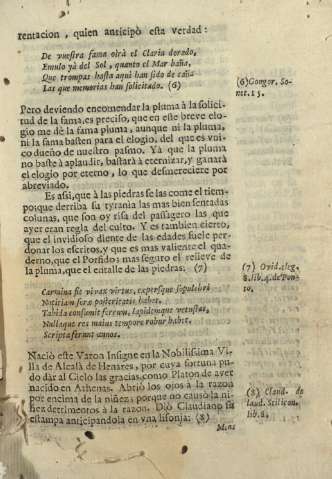 rentacion, quien anticipò esta verdad:
De vuestra fama oirà el Clarin dorado,
Emulo yà del Sol, quanto el Mar baña,
Que trompas hasta aqui han sido de caña
Las que memorias han solicitado. (6)
(6) Gongor. So-
net. 15.
Pero deviendo encomendar la pluma à la solici-
tud de la fama, es preciso, que en este breve elo-
gio me dè la fama pluma, aunque ni la pluma,
ni la fama basten para el elogio, del que es vivo
co dueño de nuestro pasmo. Yà que la pluma
no baste à aplaudir, bastarà à eternizar, y ganarà
el elogio por eterno, lo que desmereciere por
abreviado.
Es assi, que à las piedras se las come el tiem-
po; que derriba su tyrania las mas bien sentadas
colunas, que son oy risa del passagero las que
ayer eran regla del culto. Y es tambien cierto,
que el invidioso diente de las edades suele per-
donar los escritos, y que es mas valiente el qua-
derno, que el Porfido: mas seguro el relieve de
la pluma, que el entalle de las piedras: (7)
(7) Ovid. eleg.
8. lib. 4. de Pon-
to.
Carmina fit vivax virtus, expersque sepulchri
Notitiam seræ posteritatis habet.
Tabida consumit ferrum, lapidemque vetustas,
Nullaque res maius tempore robur habet.
Scripta ferunt annos.
Naciò este Varon Insigne en la Nobilissima Vi-
lla de Alcalà de Henares, por cuya fortuna pu-
do dàr al Cielo las gracias, como Platon de aver
nacido en Athenas. Abriò los ojos à la razon
por encima de la niñez; porque no causò la ni-
ñez detrimentos à la razon. Diò Claudiano su
estampa anticipandola en una lisonja: (8)
(8) Claud. de
laud. Stilicon.
lib. 8.